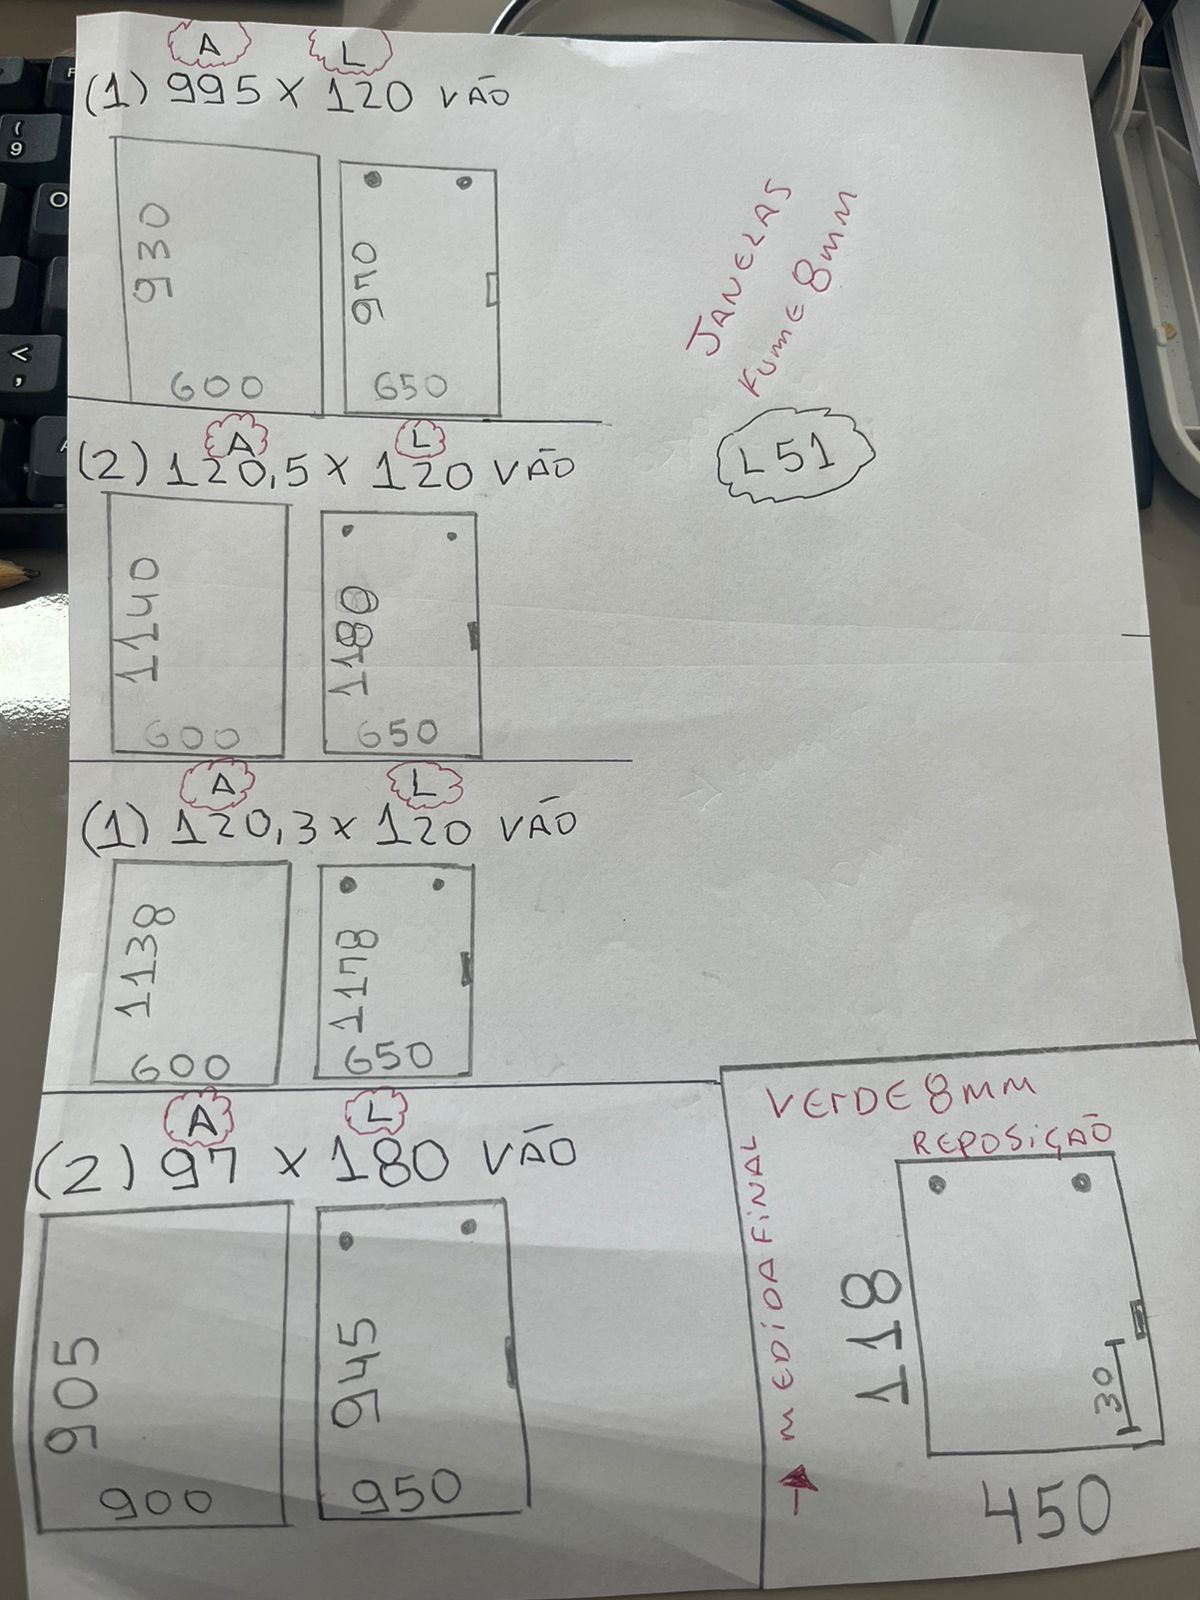 A L
(1) 995 X 120 VÃO
930
600
970
650
JANELAS
FUMÊ 8MM
L51
A L
(2) 120,5 X 120 VÃO
1140
600
1180
650
A L
(1) 120,3 X 120 VÃO
1138
600
1178
650
A L
(2) 97 X 180 VÃO
905
900
945
950
VERDE 8MM
REPOSIÇÃO
MEDIDA FINAL
118
30
450
9
O
<
,